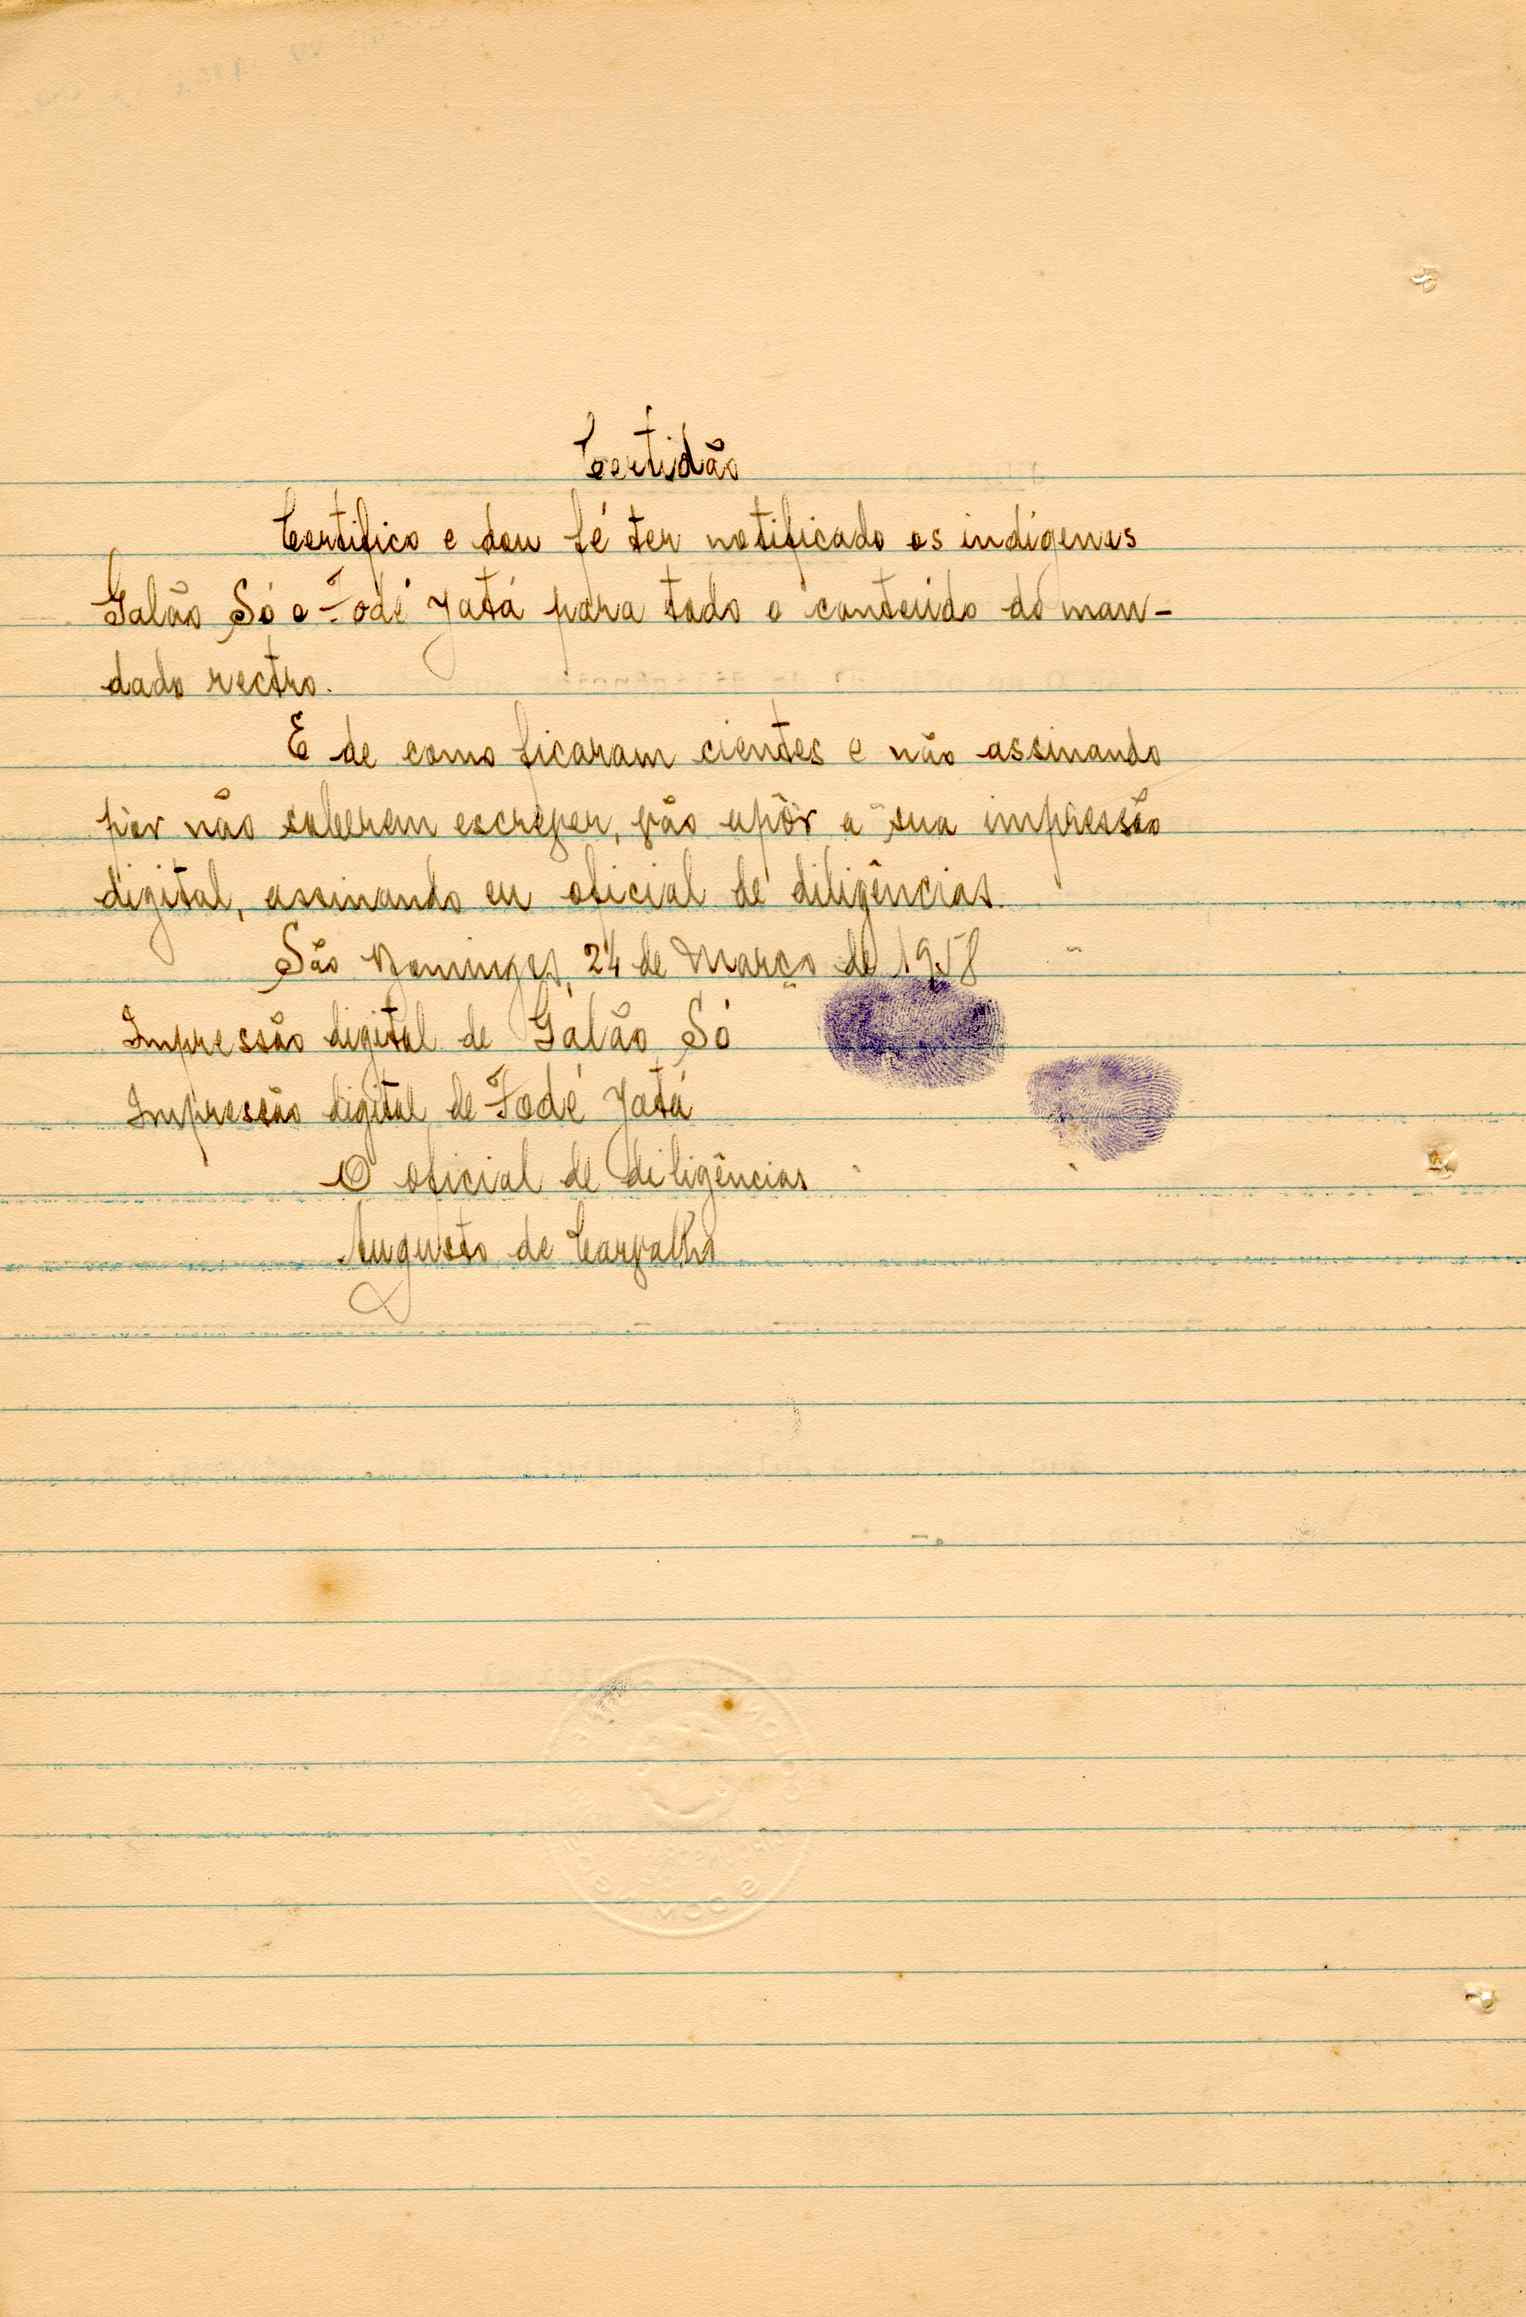 Certidão
Certifico e dou fé ter notificado os indígenas
Galão Só e Fodé Jatá para todo o conteúdo do man-
dado rectro.
E de como ficaram cientes e não assinando
por não saberem escrever, vão apôr a sua impressão
digital, assinando eu oficial de diligências.
São Domingos, 24 de Março de 1958
Impressão digital de Galão Só
Impressão digital de Fodé Jatá
O oficial de diligências
Augusto de Carvalho